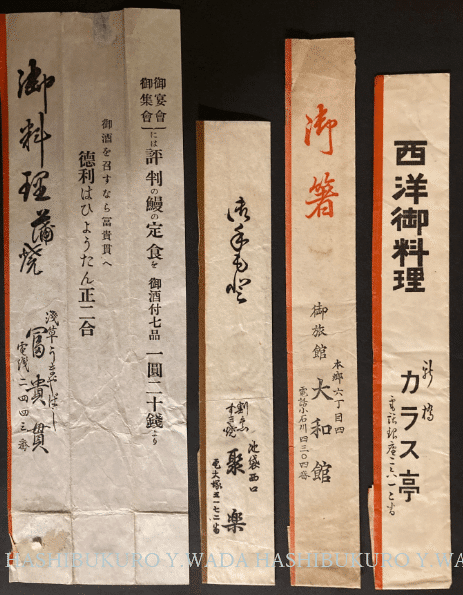 御宴會
御集會
には評判の鰻の定食を 御酒付七品 一圓二十錢より
御酒を召すなら冨貴貫へ
德利はひょうたん正二合
御料理 蒲焼
冨貴貫
電浅二四四三番
割烹
すき焼
池袋西口
聚楽
電大塚五一七二番
御箸
御旅館 大和館
本郷六丁目四
電話小石川四三〇四番
西洋御料理
新橋
カラス亭
HASHIBUKURO Y.WADA HASHIBUKURO Y.WADA